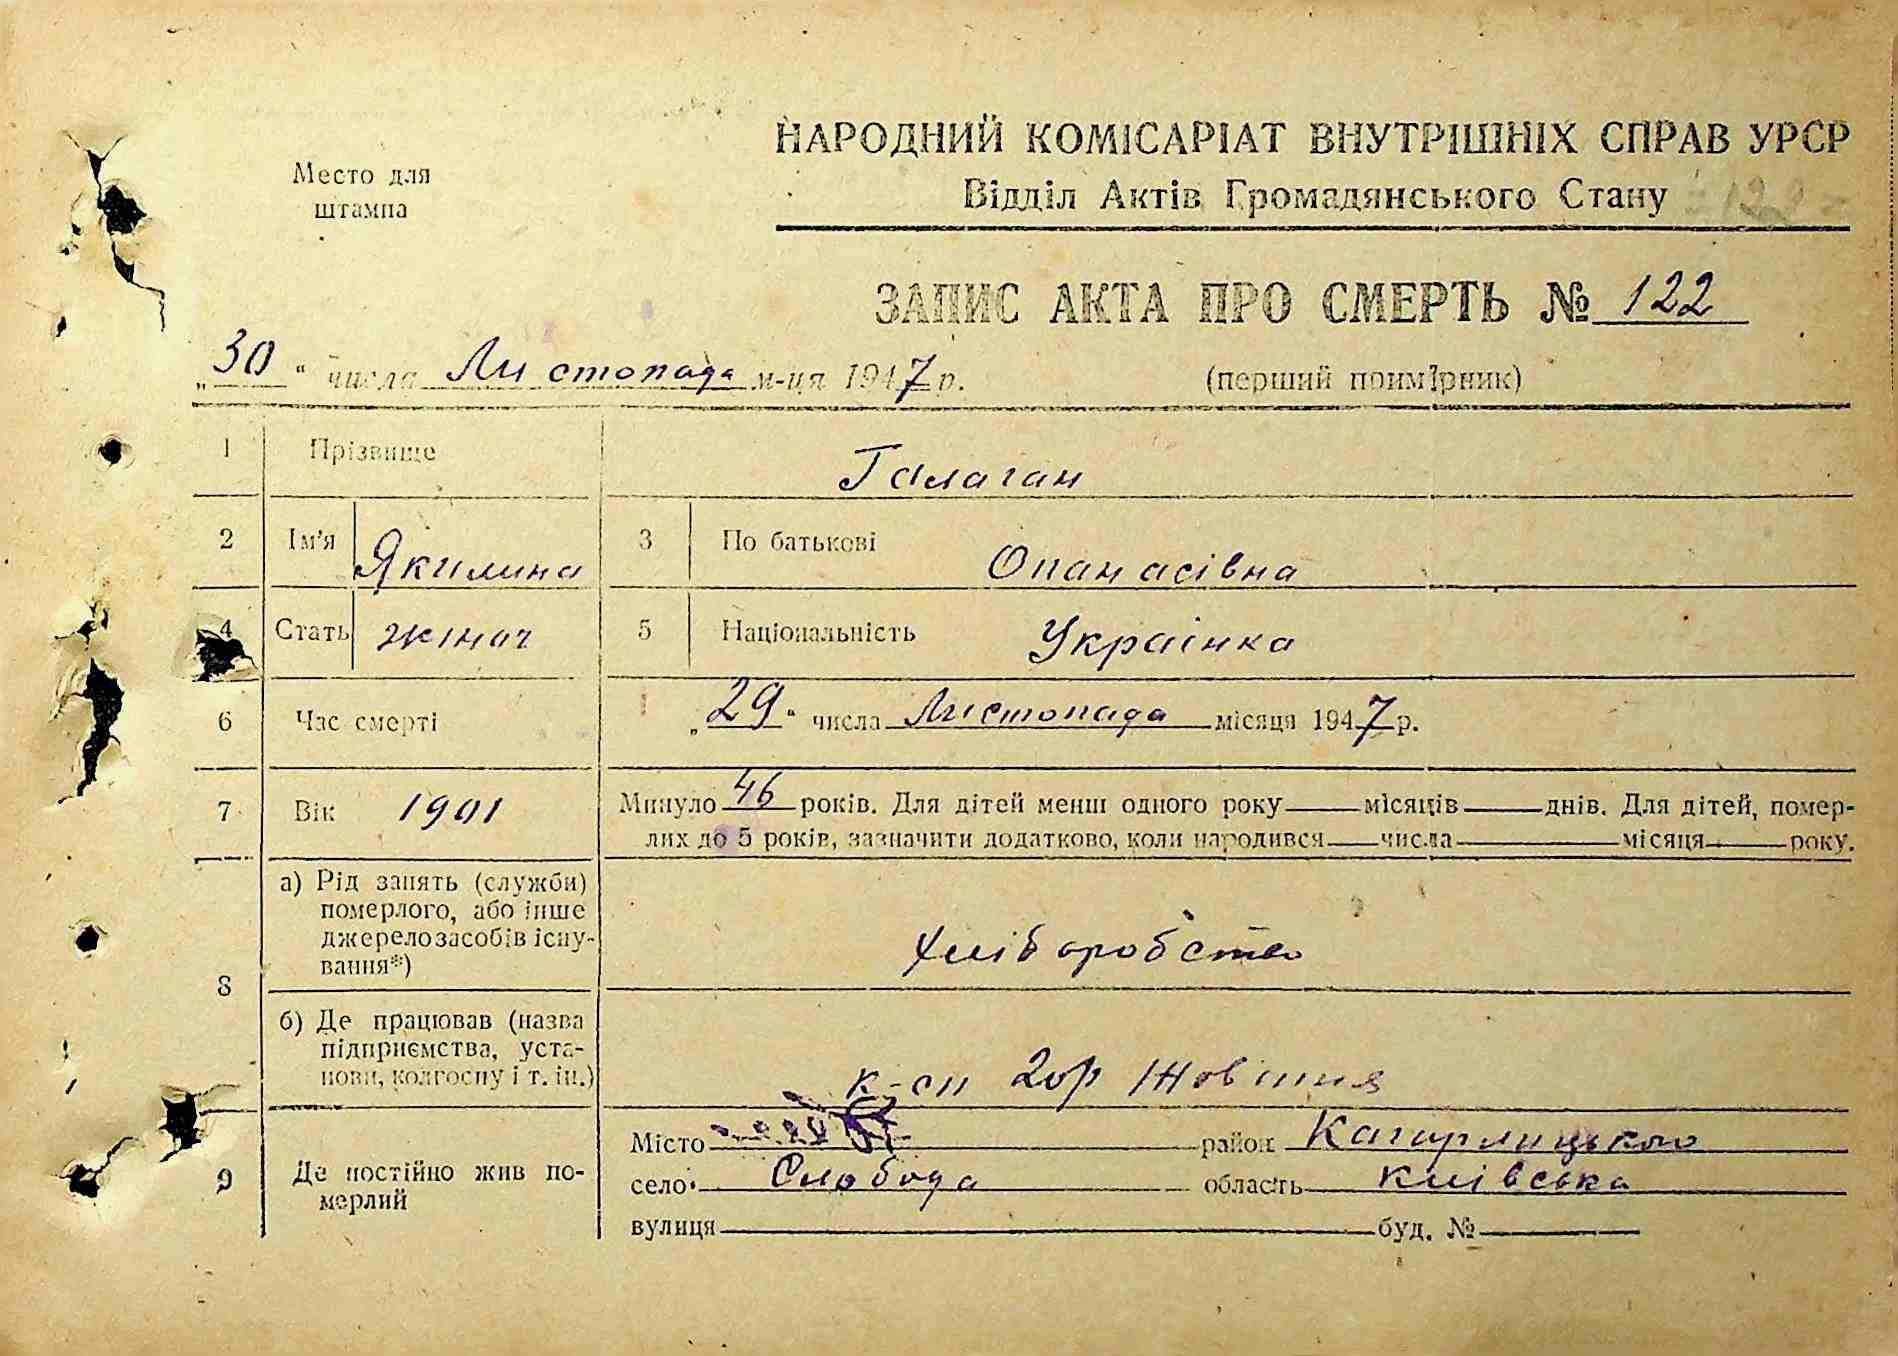 Место для
штампа
НАРОДНИЙ КОМІСАРІАТ ВНУТРІШНІХ СПРАВ УРСР
Відділ Актів Громадянського Стану
ЗАПИС АКТА ПРО СМЕРТЬ № 122
„30“ числа Листопада м-ця 1947 р.
(перший примірник)
1 Прізвище Галаган
2 Ім'я Якилина 3 По батькові Опанасівна
4 Стать жіноч 5 Національність Українка
6 Час смерті „29“ числа Листопада місяця 1947 р.
7 Вік 1901 Минуло 46 років. Для дітей менш одного року місяців днів. Для дітей, помер-
лих до 5 років, зазначити додатково, коли народився числа місяця року.
8 а) Рід занять (служби)
померлого, або інше
джерело засобів існу-
вання*)
Хліборобство
б) Де працював (назва
підприємства, уста-
нови, колгоспу і т. ін.)
к-сп 20р Жовтня
9 Де постійно жив по-
мерлий
Місто район Кагарлицького
село Слобода область київська
вулиця буд. №